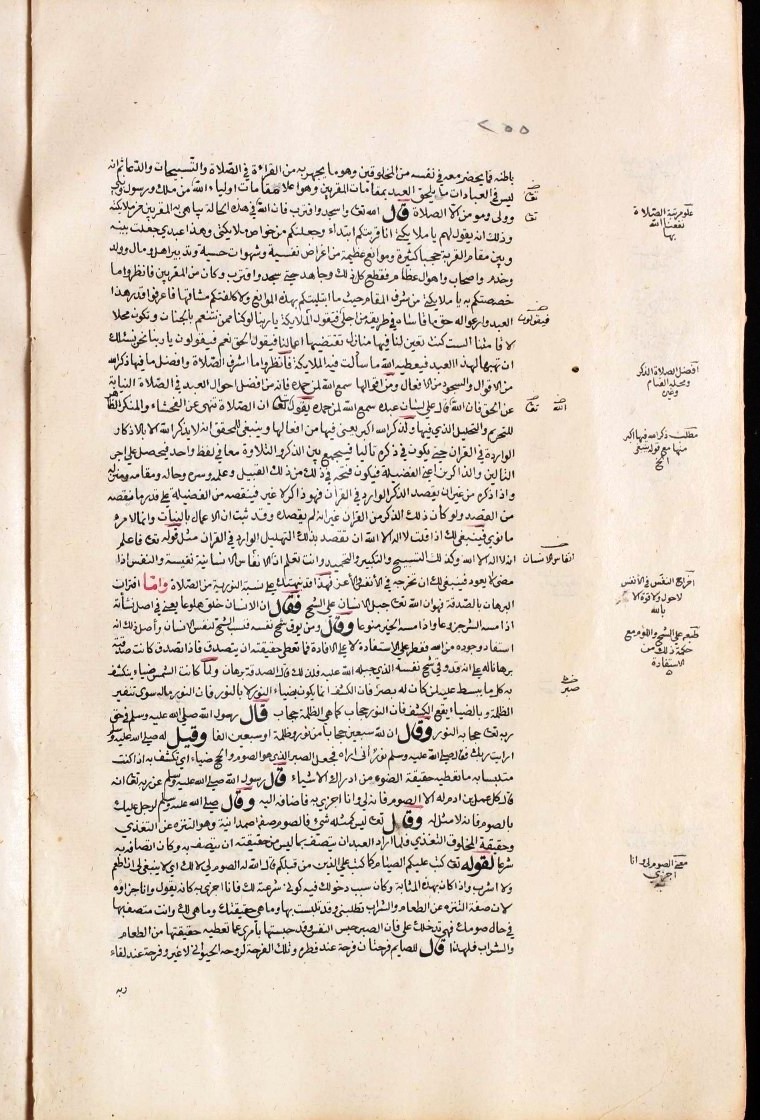 ٢٥٥
باطنه فما يحضر معه في نفسه من المخلوقين وهو ما يجهر به من القراءة في الصلاة والتسبيحات والدعاء ثم انه
ليس في العبادات ما يلحق العبد بمقامات المقربين وهو اعلا مقامات اولياء الله من ملك ورسول ونبي
وولى ومومن الا الصلاة قال الله تعا واسجد واقترب فان الله في هذه الحالة يباهى به المقربين من ملايكته
وذلك انه يقول لهم يا ملايكتي انا قربتكم ابتداء وجعلتكم من خواص ملايكتي وهذا عبدي جعلت بينه
وبين مقام القربة حجبا كثيرة وموانع عظيمة من اغراض نفسية وشهوات حسية وتدبير اهل ومال وولد
وخدم واصحاب واهوال عظام فقطع كل ذلك وجاهد حتى سجد واقترب وكان من المقربين فانظروا ما
خصصتكم به يا ملايكتي من شرف المقام حيث ما ابتليتكم بهذه الموانع ولا كلفتكم مشاقها فاعرفوا قدر هذا
العبد وارعوا له حق ما قاساه في طريقه من اجلى فتقول الملايكة يا ربنا لو كنا ممن تتنعم بالجنات وتكون محلا
لاقامتنا الست كنت تعين لنا فيها منازل تقتضيها اعمالنا فيقول الحق نعم فيقولون يا ربنا نحن نسئلك
ان تهبها لهذا العبد فيعطيه الله ما سألت فيه الملايكة فانظروا ما اشرف الصلاة وافضل ما فيها ذكر الله
من الاقوال والسجود من الافعال ومن اقوالها سمع الله لمن حمده فانه من افضل احوال العبد في الصلاة النيابة
عن الحق فان الله قال على لسان عبده سمع الله لمن حمده يقول تعا ان الصلاة تنهى عن الفحشاء والمنكر
للتحريم والتحليل الذي فيها ولذكر الله اكبر يعنى فيها من افعالها وينبغي للمحقق انه لا يذكر الله الا بالاذكار
الواردة في القران حتى يكون في ذكره تاليا فيجمع بين الذكر والتلاوة معا في لفظ واحد فيحصل على اجر
التالين والذاكرين اعنى الفضيلة فيكون فتحه في ذلك من ذلك القبيل وعلمه وسره وحاله ومقامه ومنزله
واذا ذكره من غير ان يقصد الذكر الوارد في القران فهو ذاكر لا غير فينقصه من الفضيلة على قدر ما نقصه
من القصد ولو كان ذلك الذكر من القران غير انه لم يقصده وقد ثبت ان الاعمال بالنيات وانما لامرء
ما نوى فينبغي لك اذا قلت لا اله الا الله ان تقصد بذلك التهليل الوارد في القران مثل قوله تعا فاعلم
انه لا اله الا الله وكذلك التسبيح والتكبير والتحميد وانت تعلم ان الانفاس الانسانية نفيسة والنفس اذا
مضى لا يعود فينبغي لك ان تخرجه في الانفس والاعز فهذا قد نبهتك على نسبة النورية من الصلاة واما اقتران
البرهان بالصدقة فهو ان الله تعا جبل الانسان على الشح فقال ان الانسان خلق هلوعا يعنى في اصل نشأته
اذا مسه الشر جزوعا واذا مسه الخير منوعا وقال ومن يوق شح نفسه فنسب الشح لنفس الانسان واصل ذلك انه
استفاد وجوده من الله ففطر على الاستفادة لا على الافادة فما تعطى حقيقته ان يتصدق فاذا تصدق كانت صدقته
برهانا له على انه قد وقى شح نفسه الذي جبله الله عليه فلذلك قال الصدقة برهان ولما كانت الشمس ضياء يكشف
به كل ما يبسط عليه لمن كان له بصر فان الكشف انما يكون بضياء النور لا بالنور فان النور ما له سوى تنفير
الظلمة وبالضياء يقع الكشف فان النور حجاب كما هي الظلمة حجاب قال رسول الله صلى الله عليه وسلم في حق
ربه تعا حجابه النور وقال ان لله سبعين حجابا من نور وظلمة او سبعين الفا وقيل له صلى الله عليه وسلم
ارايت ربك فقال صلى الله عليه وسلم نورانى اراه فجعل الصبر الذي هو الصوم والحج ضياء اى تكشف به اذا كنت
متلبسا به ما تعطيه حقيقة الضوء من ادراك الاشياء قال رسول الله صلى الله عليه وسلم عن ربه تعا انه
قال كل عمل ابن ادم له الا الصوم فانه لي وانا اجزى به فاضافه اليه وقال صلى الله عليه وسلم لرجل عليك
بالصوم فانه لا مثل له وقال تعا ليس كمثله شئ فالصوم صفة صمدانية وهو التنزه عن التغذى
وحقيقة المخلوق التغذى فلما اراد العبد ان يتصف بما ليس من حقيقته ان يتصف به وكان اتصافه به
شرعا لقوله تعا كتب عليكم الصيام كما كتب على الذين من قبلكم قال الله له الصوم لى لا لك اى لا ينبغي لى ان اطعم
ولا اشرب واذا كان بهذه المثابة وكان سبب دخولك فيه كونى شرعته لك فانا اجزى به كانه يقول وانا جزاؤه
لان صفة التنزه عن الطعام والشراب تطلبنى وقد تلبست بها وما هي حقيقتك وما هي لك وانت متصف بها
في حال صومك فهى تدخلك على فان الصبر حبس النفس وقد حبستها بأمرى عما تعطيه حقيقتها من الطعام
والشراب فلهذا قال للصايم فرحتان فرحة عند فطره وتلك الفرحة لروحه الحيوانى لا غير وفرحة عند لقاء
ربه
علو مرتبة الصلاة
نفعنا الله
بها
فيقولون
افضل الصلاة الذكر
ومحله القيام
وغيره
مطلب ذكر الله فيها اكبر
منها مع قوله ينبغي
الخ
انفاس الانسان
اخراج النفس في الانفس
لاحول ولا قوة الا
بالله
طبع على الشح واللؤم مع
حكمة ذلك من
الاستفادة
صبر
معنى الصوم لى وانا
اجزى
به